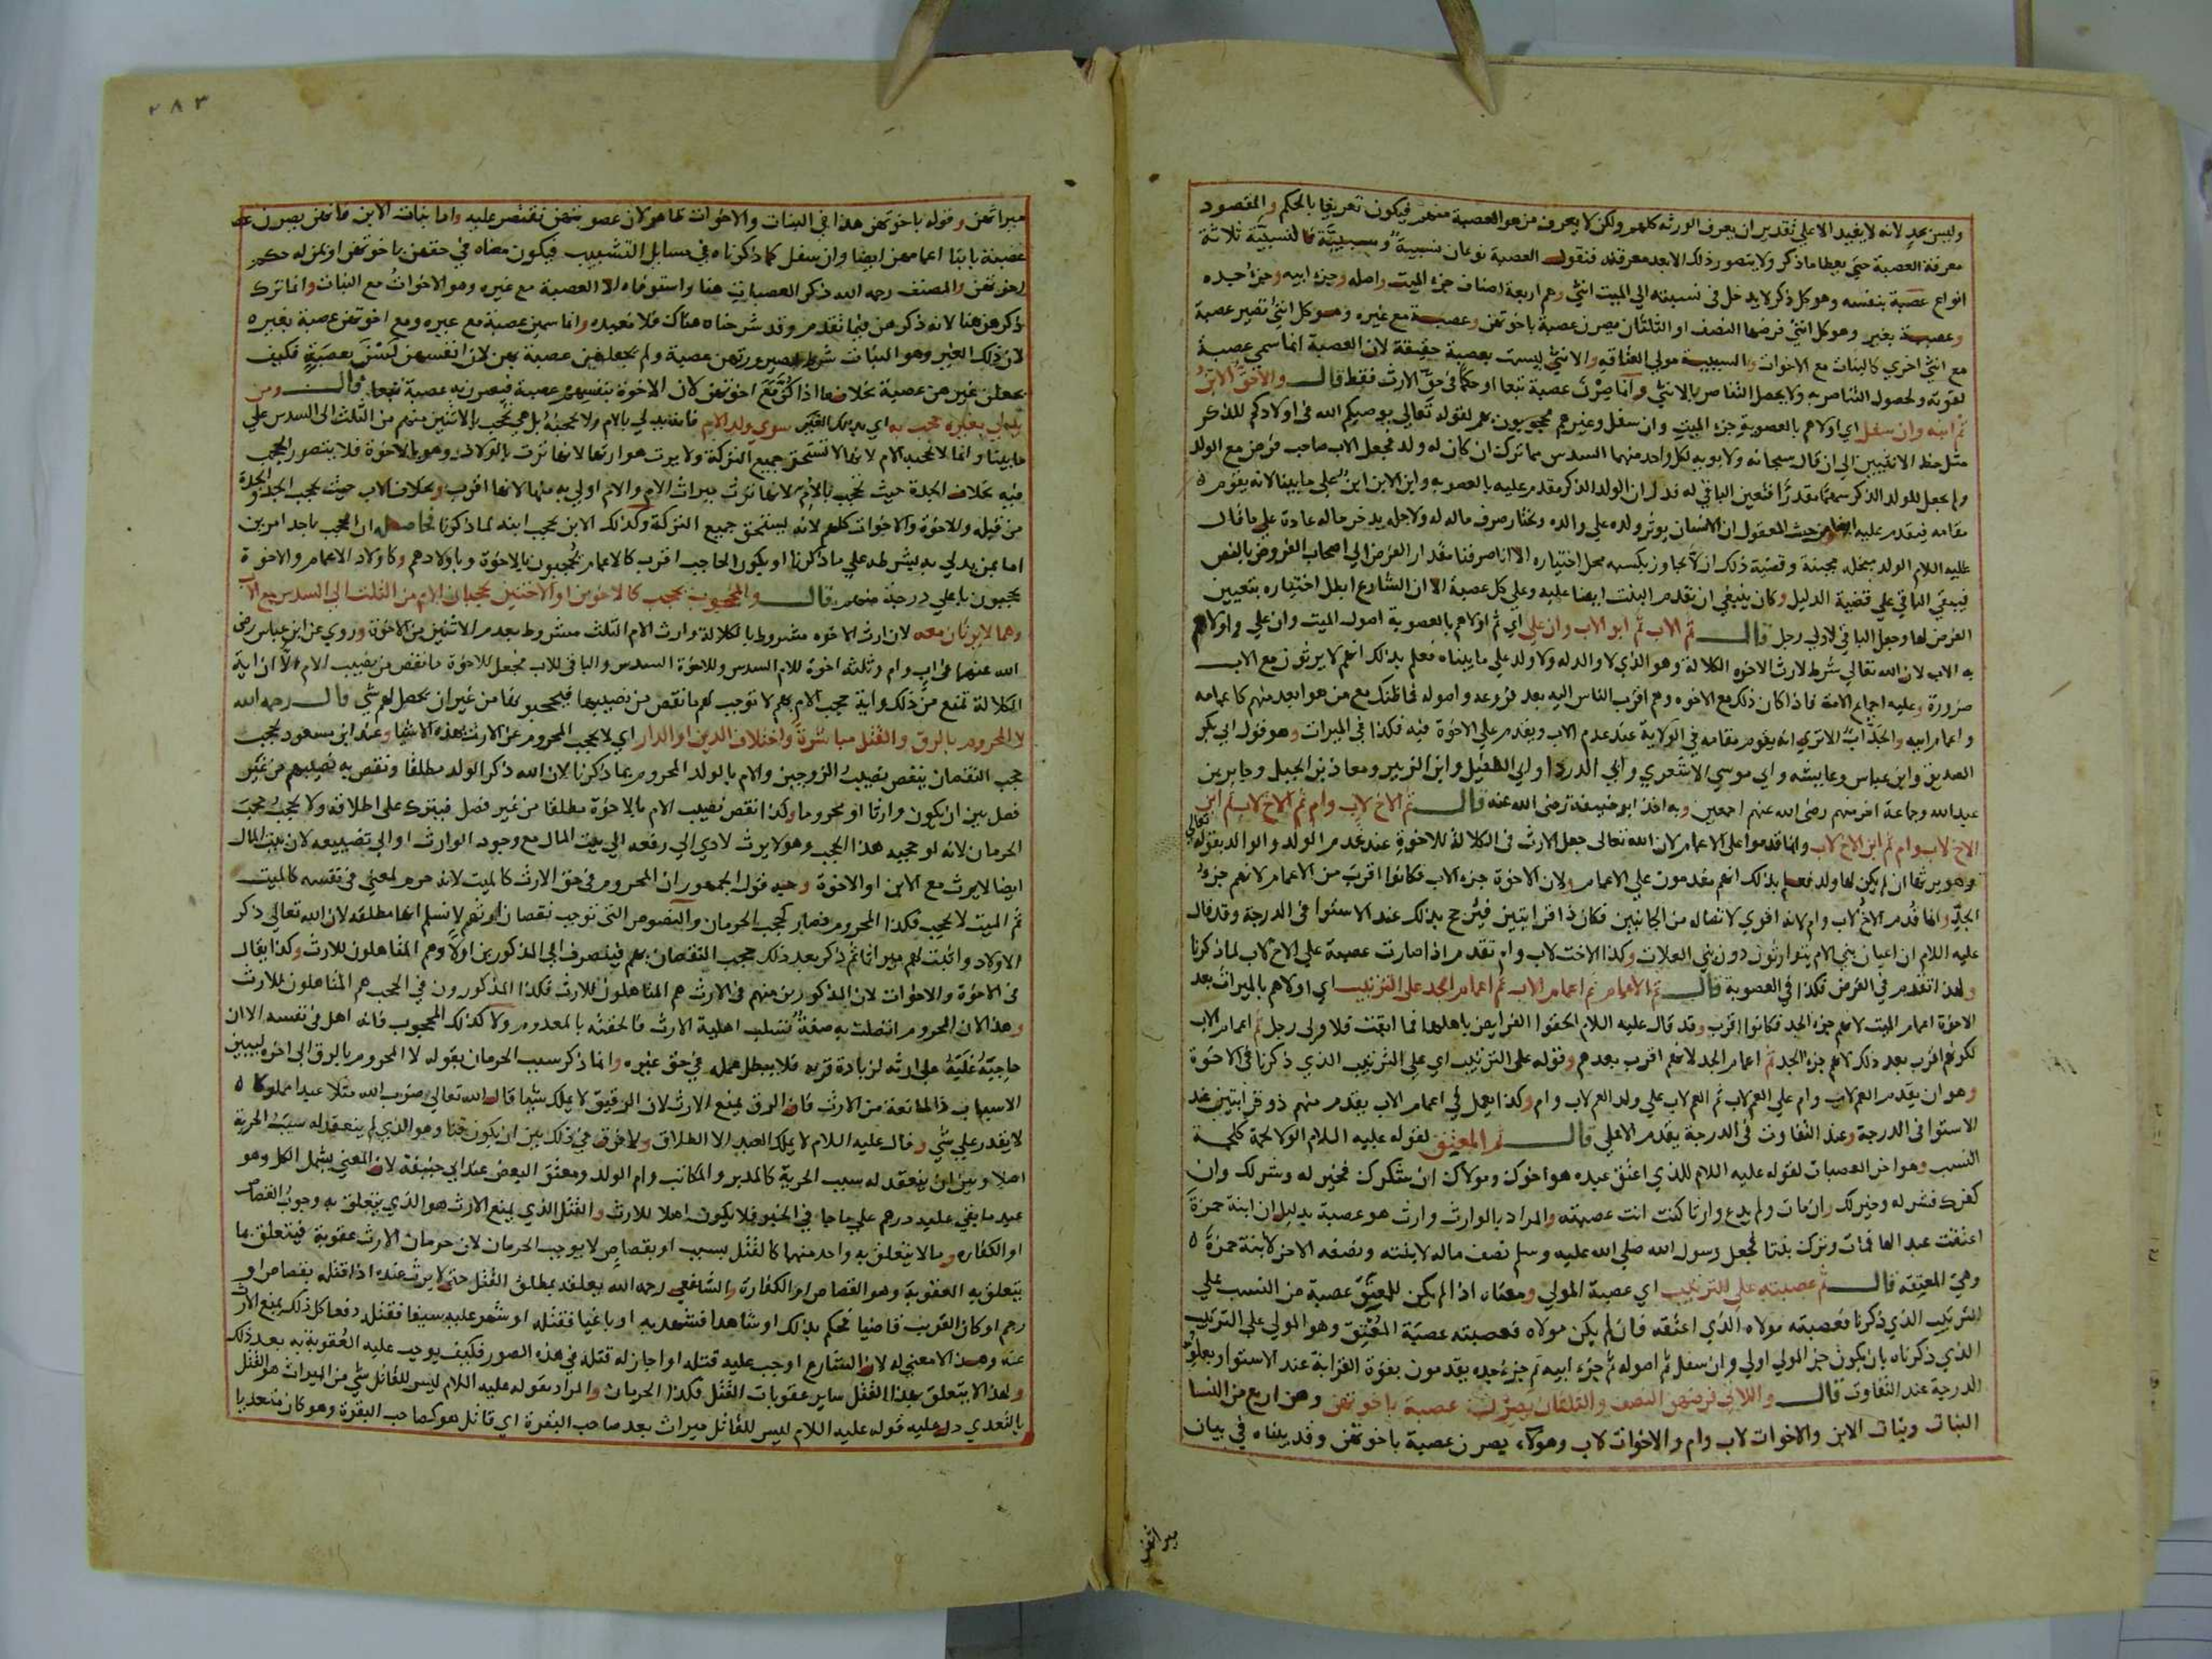 وليس بحد لانه لا يفيد الا على تقدير ان يعرف الورثة كلهم ولكن لا يعرف من هو العصبة منهم فيكون تعريفا بالحكم والمقصود
معرفة العصبة حتى يعطا ما ذكر ولا يتصور ذلك الا بعد معرفته فنقول العصبة نوعان نسبية وسببية فالنسبية ثلاثة
انواع عصبة بنفسه وهو كل ذكر لا يدخل في نسبته الى الميت انثى وهم اربعة اصناف جزء الميت واصله وجزء ابيه وجزء جده
وعصبة بغيره وهو كل انثى فرضها النصف او الثلثان يصرن عصبة باخوتهن وعصبة مع غيره وهو كل انثى تصير عصبة
مع انثى اخرى كالبنات مع الاخوات والسببية مولى العتاقة والانثى ليست بعصبة حقيقة لان العصبة انما سمي عصبة
لقوته ولحصول التناصر به ولا يحصل التناصر بالانثى وانما صرن عصبة تبعا او حكما في حق الارث فقط قال والاحق الابن
ثم ابنه وان سفل اي اولاهم بالعصوبة جزء الميت وان سفل وغيرهم محجوبون بهم لقوله تعالى يوصيكم الله في اولادكم للذكر
مثل حظ الانثيين الى ان قال سبحانه ولابويه لكل واحد منهما السدس مما ترك ان كان له ولد فجعل الاب صاحب فرض مع الولد
ولم يجعل للولد الذكر سهما مقدرا فتعين الباقي له فدل ان الولد الذكر مقدم عليه بالعصوبة وابن الابن ابن على ما بينا لانه يقوم
مقامه فيقدم عليه ايضا ومن حيث المعقول ان الانسان يؤثر ولده على والده ويختار صرف ماله له ولاجله يدخر ماله عادة على ما قال
عليه السلام الولد مبخلة مجبنة وقضية ذلك ان لا يجاوز بكسبه محل اختياره الا انا صرفنا مقدار الفرض الى اصحاب الفروض بالنص
فيبقى الباقي على قضية الدليل وكان ينبغي ان تقدم البنت ايضا عليه وعلى كل عصبة الا ان الشارع ابطل اختياره بتعيين
الفرض لها وجعل الباقي لاولى رجل قال ثم الاب ثم ابو الاب وان علي اي ثم اولاهم بالعصوبة اصول الميت وان علي واولاهم
به الاب لان الله تعالى شرط لارث الاخوة الكلالة وهو الذي لا والد له ولا ولد على ما بيناه فعلم بذلك انهم لا يرثون مع الاب
ضرورة وعليه اجماع الامة فاذا كان ذلك مع الاخوة وهم اقرب الناس اليه بعد فروعه واصوله فما ظنك مع من هو ابعد منهم كاعمامه
واعمام ابيه والجد اب الا ترى انه يقوم مقامه في الولاية عند عدم الاب ويقدم على الاخوة فيه فكذا في الميراث وهو قول ابي بكر
الصديق وابن عباس وعايشة وابي موسى الاشعري وابي الدرداء وابي الطفيل وابن الزبير ومعاذ بن الجبل وجابر بن
عبدالله وجماعة اخر منهم رضى الله عنهم اجمعين وبه اخذ ابو حنيفة رضى الله عنه قال ثم الاخ لاب وام ثم الاخ لاب ثم ابن
الاخ لاب وام ثم ابن الاخ لاب وانما قدموا على الاعمام لان الله تعالى جعل الارث في الكلالة للاخوة عند عدم الولد والوالد بقوله تعالى
وهو يرثها ان لم يكن لها ولد فعلم بذلك انهم يقدمون على الاعمام ولان الاخوة جزء الاب فكانوا اقرب من الاعمام لانهم جزء
الجد وانما قدم الاخ لاب وام لانه اقوى لاتصاله من الجانبين فكان ذا قرابتين فيرجح بذلك عند الاستوا في الدرجة وقد قال
عليه السلام ان اعيان بني الام يتوارثون دون بني العلات وكذا الاخت لاب وام تقدم اذا صارت عصبة على الاخ لاب لما ذكرنا
ولهذا تقدم في الفرض فكذا في العصوبة قال ثم الاعمام ثم اعمام الاب ثم اعمام الجد على الترتيب اي اولاهم بالميراث بعد
الاخوة اعمام الميت لانهم جزء الجد فكانوا اقرب وقد قال عليه السلام الحقوا الفرايض باهلها فما ابقت فلاولى رجل ثم اعمام الاب
لكونهم اقرب بعد ذلك لانهم جزء الجد ثم اعمام الجد لانهم اقرب بعدهم وقوله على الترتيب اي على الترتيب الذي ذكرنا في الاخوة
وهو ان يقدم العم لاب وام على العم لاب ثم العم لاب على ولد العم لاب وام وكذا يعمل في اعمام الاب يقدم منهم ذو قرابتين عند
الاستوا في الدرجة وعند التفاوت في الدرجة يقدم الاعلى قال ثم المعتق لقوله عليه السلام الولا لحمة كلحمة
النسب وهو اخر العصبات لقوله عليه السلام للذي اعتق عبده هو اخوك ومولاك ان شكرك فخير له وشر لك وان
كفرك فشر له وخير لك وان مات ولم يدع وارثا كنت انت عصبته والمراد بالوارث وارث هو عصبة بدليل ان ابنة حمزة
اعتقت عبدا لها فمات وترك بنتا فجعل رسول الله صلى الله عليه وسلم نصف ماله لابنته ونصفه الاخر لابنة حمزة
وهي المعتقة قال ثم عصبته على الترتيب اي عصبة المولى ومعناه اذا لم يكن للمعتق عصبة من النسب على
الترتيب الذي ذكرنا فعصبته مولاه الذي اعتقه فان لم يكن مولاه فعصبته عصبة المعتق وهو المولى على الترتيب
الذي ذكرناه بان يكون جزء المولى اولى وان سفل ثم اصوله ثم جزء ابيه ثم جزء جده يقدمون بقوة القرابة عند الاستوا وبعلو
الدرجة عند التفاوت قال واللاتي فرضهن النصف والثلثان يصرن عصبة باخوتهن وهن اربع من النسا
البنات وبنات الابن والاخوات لاب وام والاخوات لاب وهولاء يصرن عصبة باخوتهن وقد بيناه في بيان
ميراثهن
٢٨٣
ميراثهن وقوله باخوتهن هذا في البنات والاخوات ظاهر لان عصوبتهن تقتصر عليه واما بنات الابن فانهن يصرن
عصبة بابنا اعمامهن ايضا وان سفل كما ذكرناه في مسايل التشبيب فيكون معناه في حقهن باخوتهن او بمن له حكم
اخوتهن والمصنف رحمه الله ذكر العصبات هنا واستوفاه الا العصبة مع غيره وهو الاخوات مع البنات وانما ترك
ذكرهن هنا لانه ذكرهن فيما تقدم وقد شرحناه هناك فلا نعيده وانما سمين عصبة مع غيره ومع اخوتهن عصبة بغيره
لان ذلك الغير وهو البنات شرط لصيرورتهن عصبة ولم يجعلهن عصبة بهن لان انفسهن لسن بعصبة فكيف
يجعلن غيرهن عصبة بخلاف ما اذا كن مع اخوتهن لان الاخوة بنفسهم عصبة فيصرن به عصبة تبعا قال ومن
يدلي بغيره حجب به اي بذلك الغير سوى ولد الام فانه يدلي بالام ولا يحجبه بل هي تحجب بالاثنين منهم من الثلث الى السدس على
ما بينا وانما لا تحجبه الام لانها لا تستحق جميع التركة ولا يرث هو ارثها لانها ترث بالولاد وهو بالاخوة فلا يتصور الحجب
فيه بخلاف الجدة حيث تحجب بالام لانها ترث ميراث الام والام اولى به منها لانها اقرب وبخلاف الاب حيث يحجب الجد والجدة
من قبله والاخوة والاخوات كلهم لانه يستحق جميع التركة وكذلك الابن يحجب ابنه لما ذكرنا فحاصله ان الحجب باحد امرين
اما بمن يدلي به بشرطه على ما ذكرنا او بكون الحاجب اقرب كالاعمام يحجبون بالاخوة وباولادهم وكاولاد الاعمام والاخوة
يحجبون باعلى درجة منهم قال والمحجوب يحجب كالاخوين او الاختين يحجبان الام من الثلث الى السدس مع الاب
وهما لا يرثان معه لان ارث الاخوه مشروط بالكلالة وارث الام الثلث مشروط بعدم الاثنين من الاخوة وروي عن ابن عباس رضى
الله عنهما في اب وام وثلثة اخوة للام السدس وللاخوة السدس والباقي للاب فجعل للاخوة ما نقص من نصيب الام الا ان اية
الكلالة تمنع من ذلك واية حجب الام بهم لا توجب لهم ما نقص من نصيبها فيحجبونها من غير ان يحصل لهم شي قال رحمه الله
لا المحروم بالرق والقتل مباشرة واختلاف الدين او الدار اي لا يحجب المحروم عن الارث بهذه الاشيا وعند ابن مسعود يحجب
حجب النقصان ينقص نصيب الزوجين والام بالولد المحروم بما ذكرنا لان الله ذكر الولد مطلقا ونقص به نصيبهم من غير
فصل بين ان يكون وارثا او محروما وكذا نقص نصيب الام بالاخوة مطلقا من غير فصل فيترك على اطلاقه ولا يحجب حجب
الحرمان لانه لو حجبه هذا الحجب وهو لا يرث لادي الى رفعه الى بيت المال مع وجود الوارث او الى تضييعه لان بيت المال
ايضا لا يرث مع الابن او الاخوة وجه قول الجمهور ان المحروم في حق الارث كالميت لانه حرم لمعنى في نفسه كالميت
ثم الميت لا يحجب فكذا المحروم فصار كحجب الحرمان والنصوص التي توجب نقصان ارثهم لا نسلم انها مطلقه لان الله تعالى ذكر
الاولاد واثبت لهم ميراثا ثم ذكر بعد ذلك حجب النقصان بهم فينصرف الى المذكورين اولا وهم المتاهلون للارث وكذا يقال
في الاخوة والاخوات لان المذكورين منهم في الارث هم المتاهلون للارث فكذا المذكورون في الحجب هم المتاهلون للارث
وهذا لان المحروم اتصلت به صفة تسلب اهلية الارث فالحقته بالمعدوم ولا كذلك المحجوب فانه اهل في نفسه الا ان
حاجبه غلبه على ارثه لزيادة قربه فلا يبطل عمله في حق غيره وانما ذكر سبب الحرمان بقوله لا المحروم بالرق الى اخره ليبين
الاسباب المانعة من الارث فان الرق يمنع الارث لان الرقيق لا يملك شيا قال الله تعالى ضرب الله مثلا عبدا مملوكا
لا يقدر على شي وقال عليه السلام لا يملك العبد الا الطلاق ولا فرق في ذلك بين ان يكون قنا وهو الذي لم ينعقد له سبب الحرية
اصلا وبين ان ينعقد له سبب الحرية كالمدبر والمكاتب وام الولد ومعتق البعض عند ابي حنيفة لان المعنى يشمل الكل وهو
عبد ما بقي عليه درهم على ما جا في الخبر فلا يكون اهلا للارث والقتل الذي يمنع الارث هو الذي يتعلق به وجوب القصاص
او الكفاره وما لا يتعلق به واحد منهما كالقتل بسبب او بقصاص لا يوجب الحرمان لان حرمان الارث عقوبة فيتعلق بما
يتعلق به العقوبة وهو القصاص او الكفارة والشافعي رحمه الله يعلقه بمطلق القتل حتى لا يرث عنده اذا قتله بقصاص او
رجم او كان القريب قاضيا فحكم بذلك او شاهدا فشهد به او باغيا فقتله او شهر عليه سيفا فقتله دفعا كل ذلك يمنع الارث
عنه وهذا لا معنى له لان الشارع اوجب عليه قتله او اجاز له قتله في هذه الصور فكيف يوجب عليه العقوبة به بعد ذلك
ولهذا لا يتعلق بهذا القتل ساير عقوبات القتل فكذا الحرمان والمراد بقوله عليه السلام ليس للقاتل شي من الميراث هو القتل
بالتعدي دل عليه قوله عليه السلام ليس للقاتل ميراث بعد صاحب البقرة اي قاتل هو كصاحب البقرة وهو كان متعديا